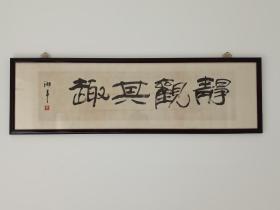 靜觀其趣